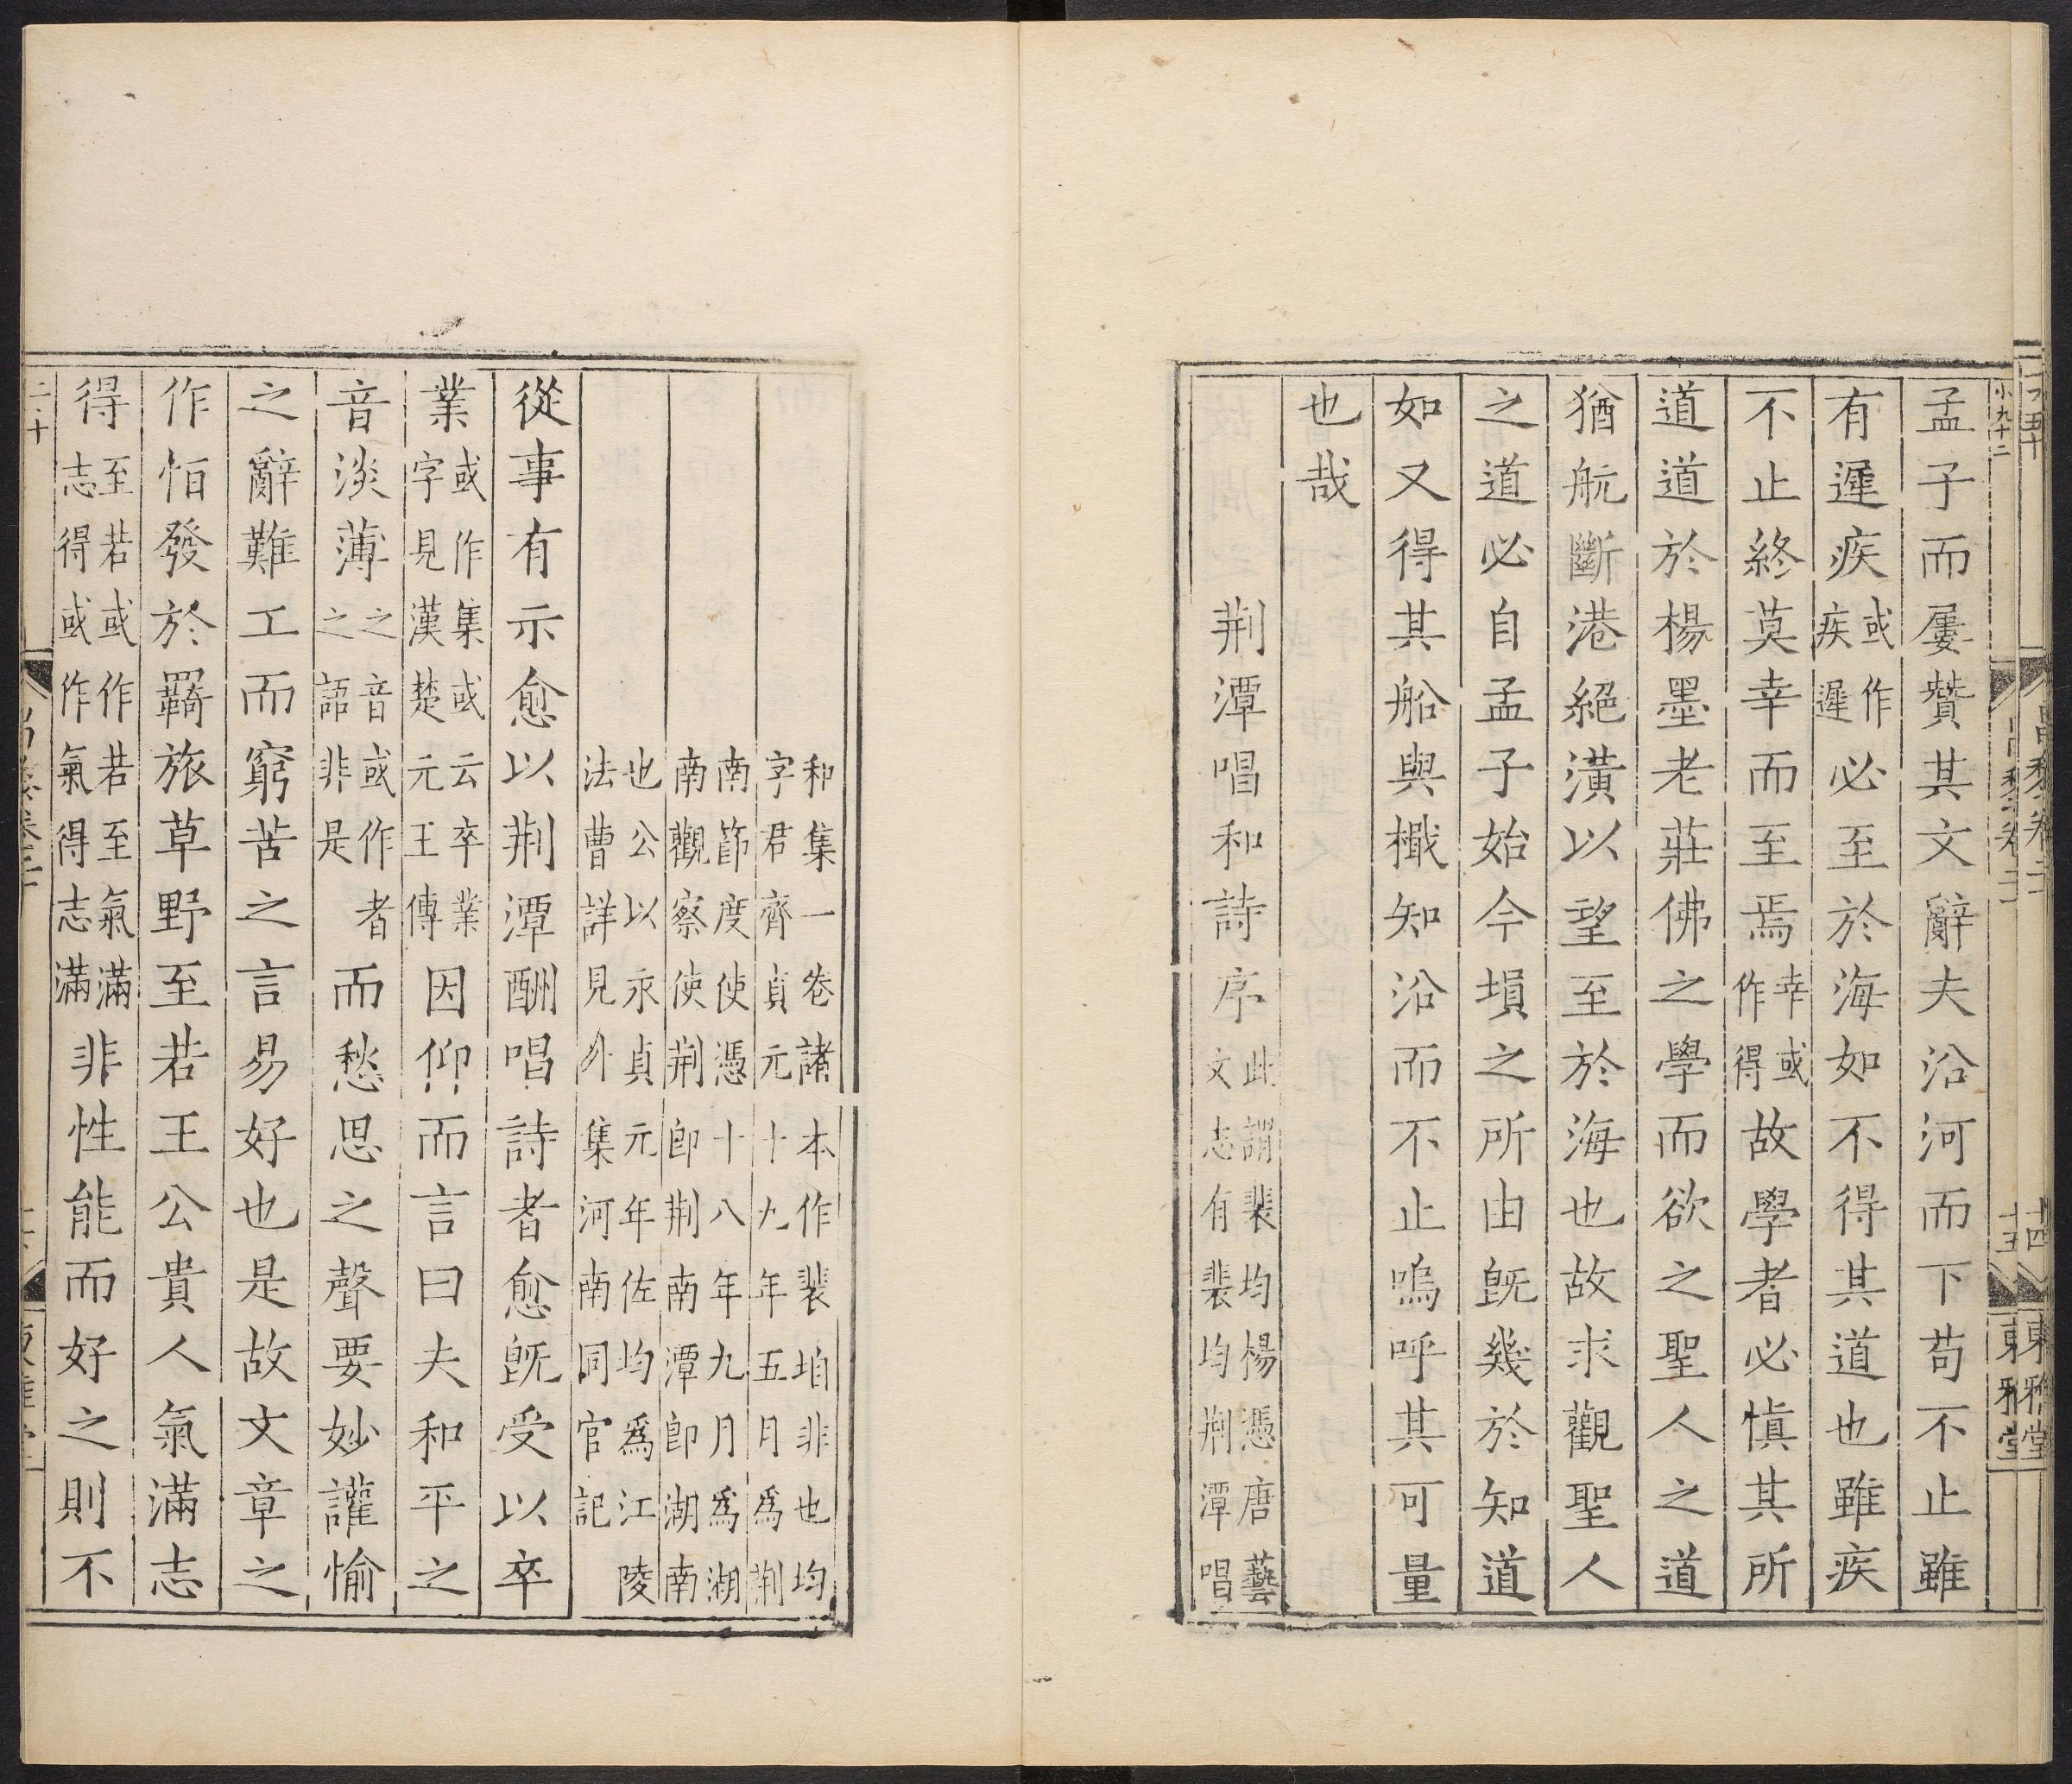 小九十二
昌黎卷二十
十五
東雅堂
孟子而屢贊其文辭夫沿河而下苟不止雖
有遲疾或作疾遲必至於海如不得其道也雖疾
不止終莫幸而至焉幸或作得故學者必慎其所
道道於楊墨老莊佛之學而欲之聖人之道
猶航斷港絕潢以望至於海也故求觀聖人
之道必自孟子始今塤之所由旣幾於知道
如又得其船與檝知沿而不止嗚呼其可量
也哉
荆潭唱和詩序此謂裴均楊憑唐藝文志有裴均荆潭唱
和集一卷諸本作裴垍非也均字君齊貞元十九年五月爲荆
南節度使憑十八年九月爲湖南觀察使荆卽荆南潭卽湖南
也公以永貞元年佐均爲江陵法曹詳見外集河南同官記
從事有示愈以荆潭酬唱詩者愈旣受以卒
業或作集或云卒業字見漢楚元王傳因仰而言曰夫和平之
音淡薄之音或作者之語非是而愁思之聲要妙讙愉
之辭難工而窮苦之言易好也是故文章之
作恒發於羇旅草野至若王公貴人氣滿志
得至若或作若至氣滿志得或作氣得志滿非性能而好之則不
二十